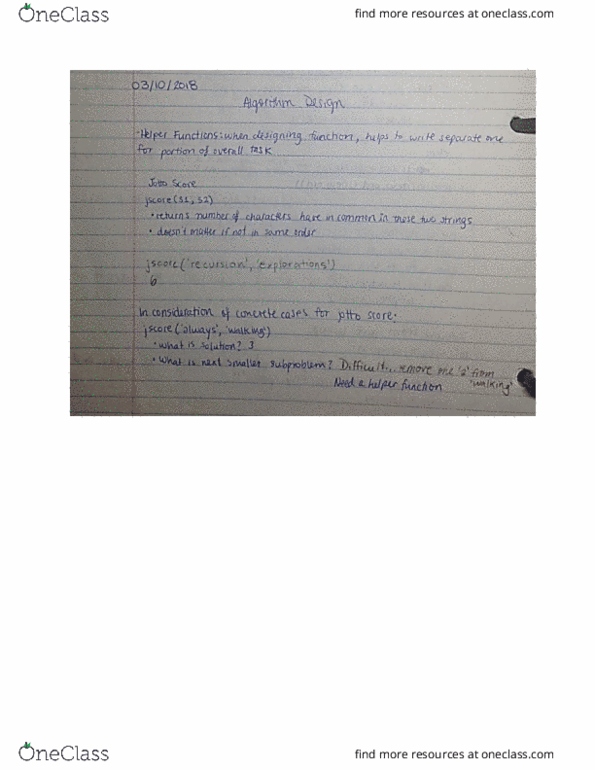 OneClass
find more resources at oneclass.com
03/10/2018
Algorithm Design
·Helper Functions: when designing function, helps to write separate one
for portion of overall task
Jotto Score
jscore(s1, s2)
• returns number of characters have in common in those two strings
• doesn't matter if not in same order
jscore('recursion', 'explorations')
6
In consideration of concrete cases for jotto score:
jscore('always', 'walking')
• what is solution? 3
• What is next smaller subproblem? Difficult... remove one 'a' from
'walking'
Need a helper function
OneClass
find more resources at oneclass.com